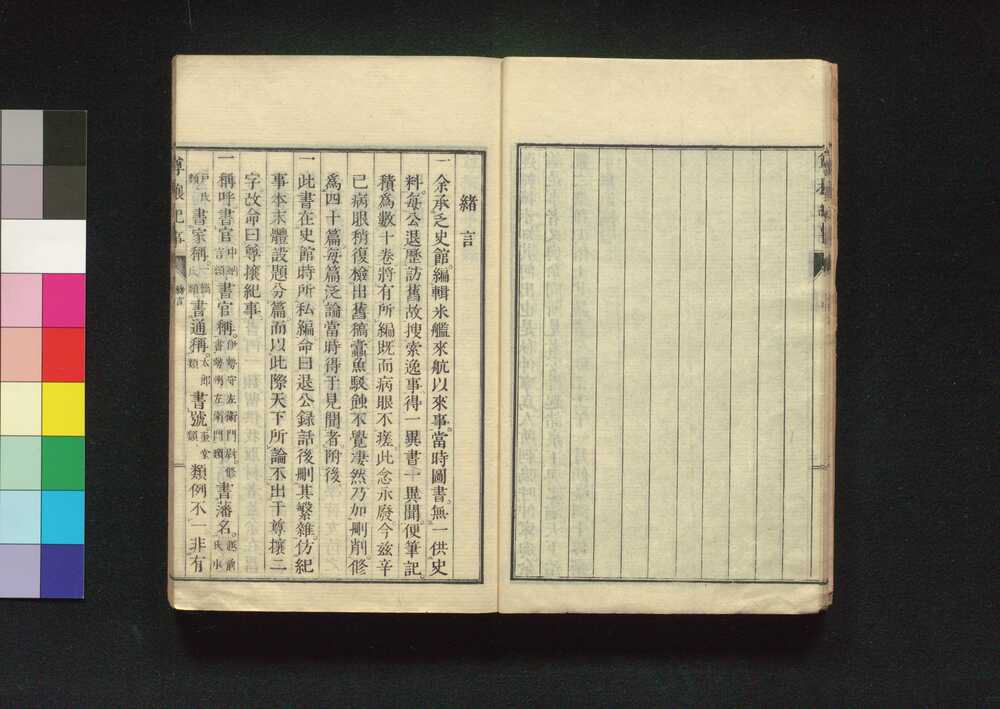 緒言
一余承乏史館。編輯米艦來航以來事。當時圖書。無一供史
料。每公退歷訪舊故搜索逸事。得一異書一異聞。便筆記。
積爲數十卷。將有所編。既而病眼不瘥。此念永廢。今玆辛
已病眼稍復。檢出舊稿。蠧魚駁蝕。不覺凄然。乃加刪削。修
爲四十篇。每篇泛論當時得于見聞者。附後。
一此書在史館時所私編。命曰退公錄話。後刪其繁雜。仿紀
事本末體。設題分篇。而以此際天下所論不出于尊攘二
字。改命曰尊攘紀事。
一稱呼書官書官稱。伊勢守左衛門尉。修書勢州左衛門類書藩名。
書家稱。書通稱。太郎類書號。類例不一。非有
尊攘紀事
緒言